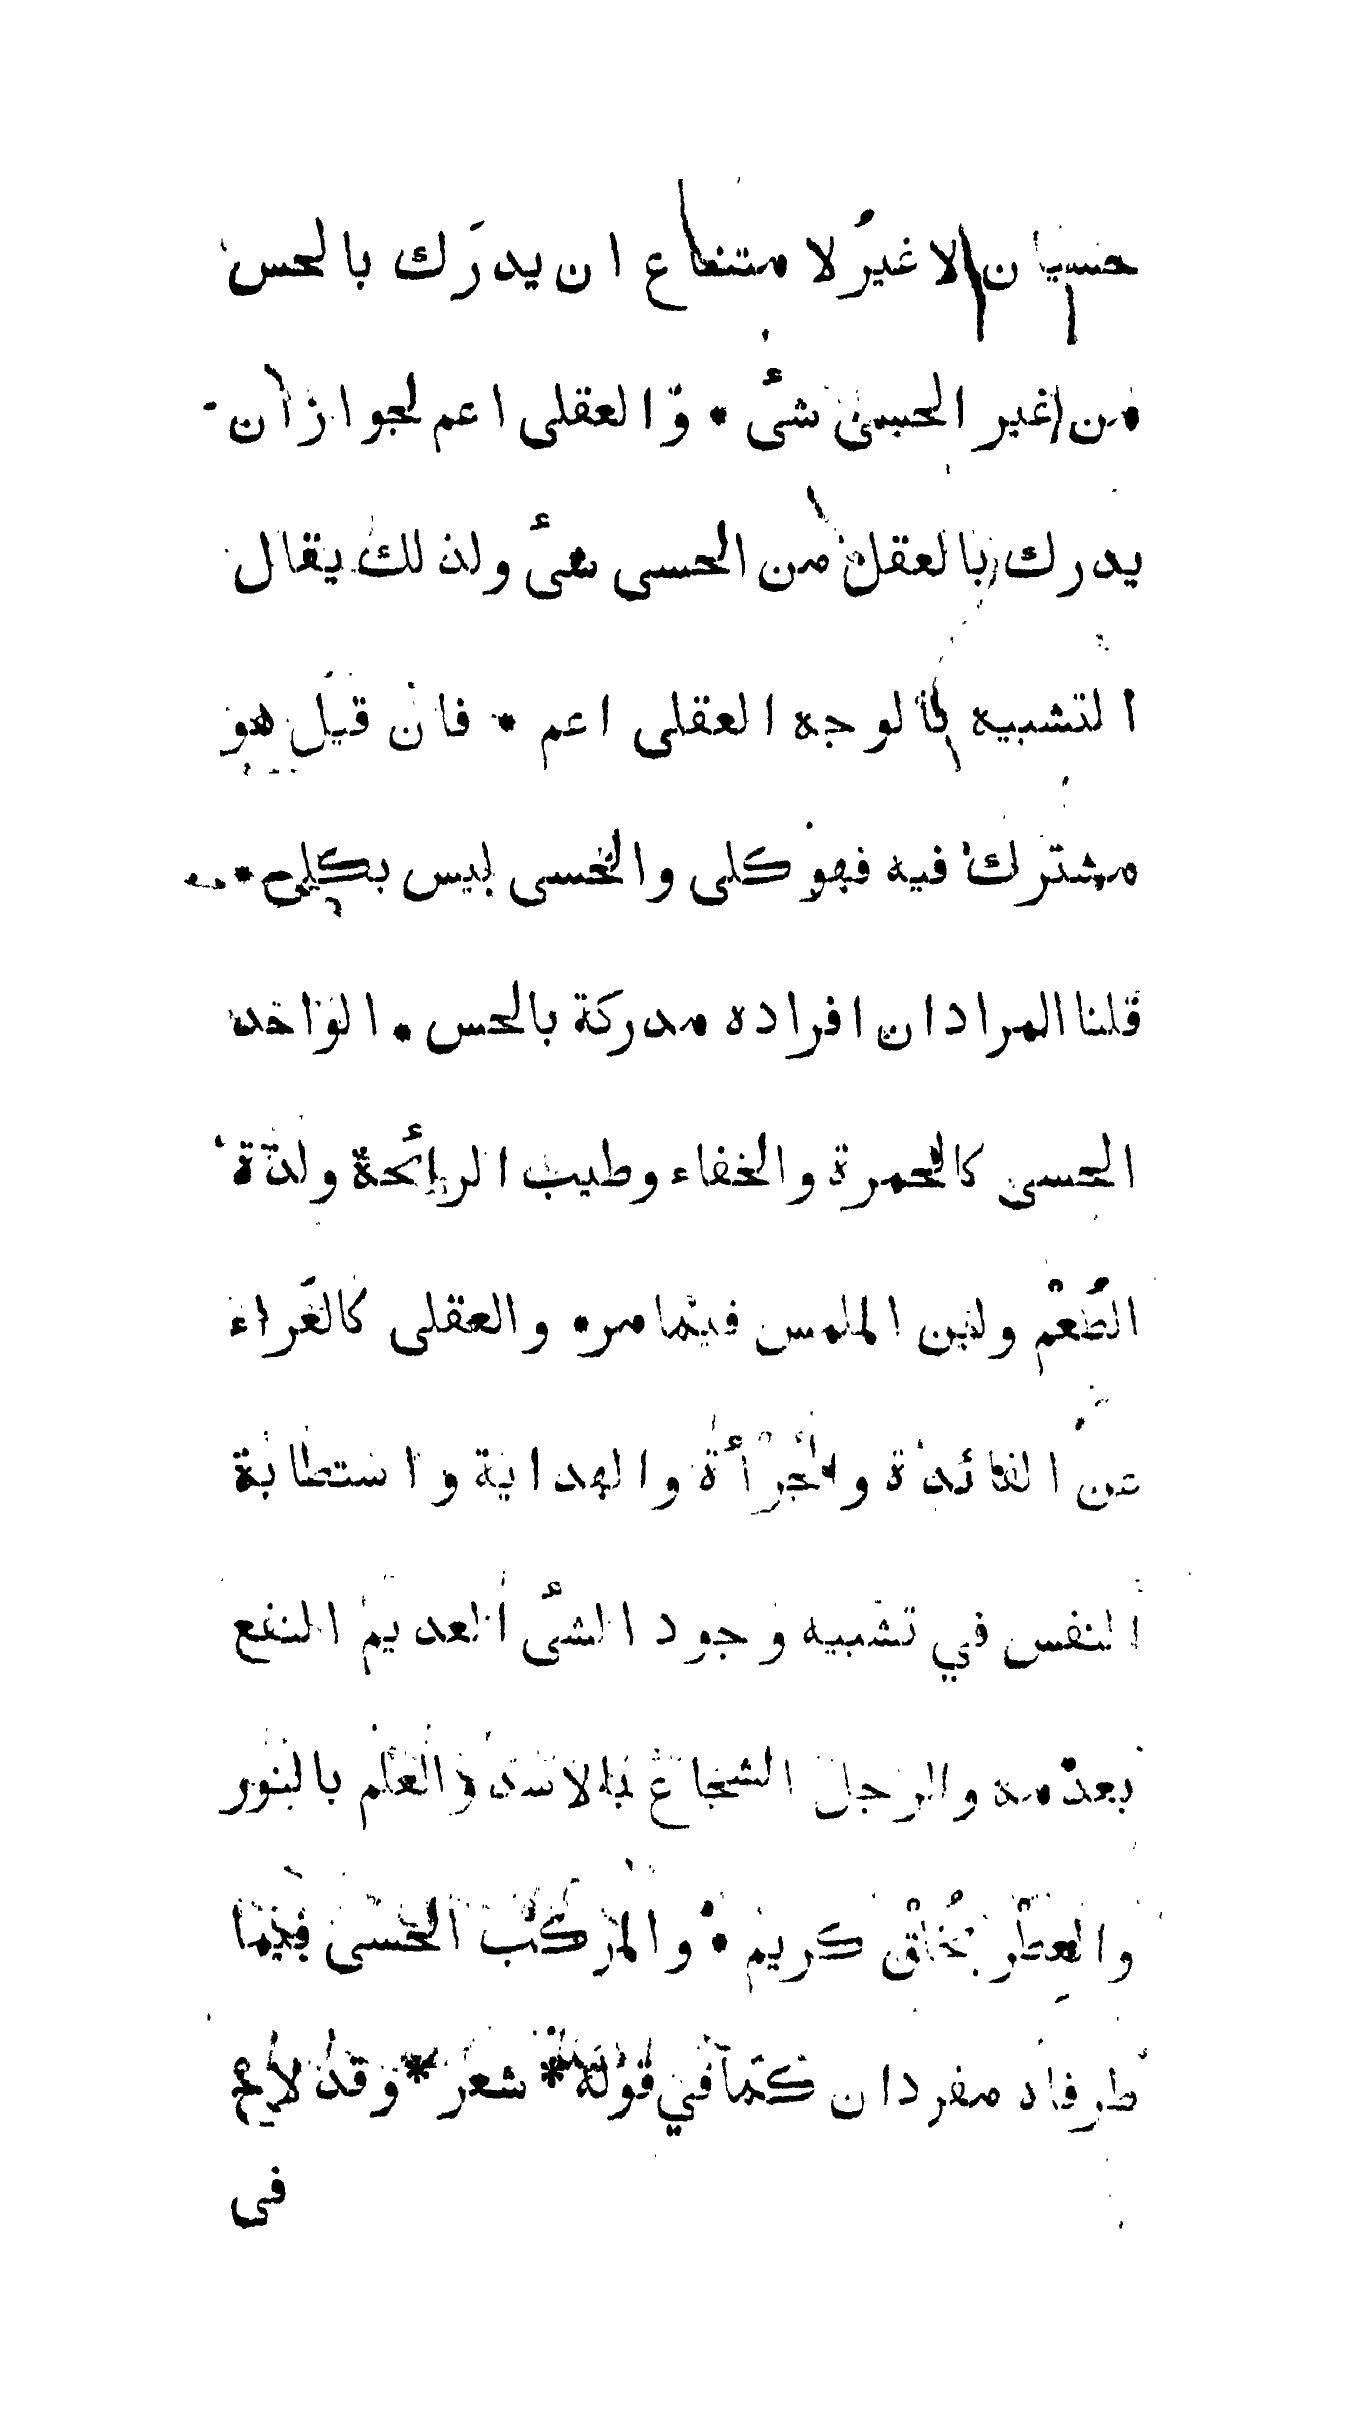 حسيان لا غيرُ لا متناع ان يدرَك بالحس
من غير الحسى شئ * والعقلى اعم لجوازان
يدرك بالعقل من الحسى شئ ولذلك يقال
التشبيه بالوجه العقلى اعم * فان قيل هو
مشترك فيه فهو كلى والحسى ليس بكلى *
قلنا المرادان افراده مدركة بالحس * الواحد
الحسى كالحمرة والخفاء وطيب الرائحة ولذة
الطُعْم ولين الملمس فيما مر * والعقلى كالعَراء
عن الفائدة والجُرْأة والهداية واستطابة
النفس في تشبيه وجود الشئ العديم النفع
بعدمه والرجل الشجاع بالاسد والعلم بالنور
والعِطْر بخُلْق كريم * والمركّب الحسى فيما
طرفاه مفردان كما في قوله * شعر * وقد لاح
فى